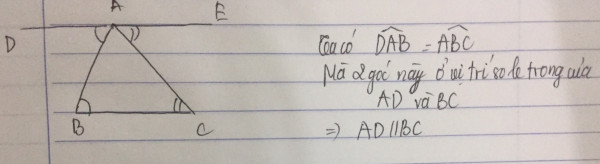 A
E
D
B
C
Ta có DAB = ABC
Mà 2 góc này ở vị trí so le trong của
AD và BC
=> AD//BC